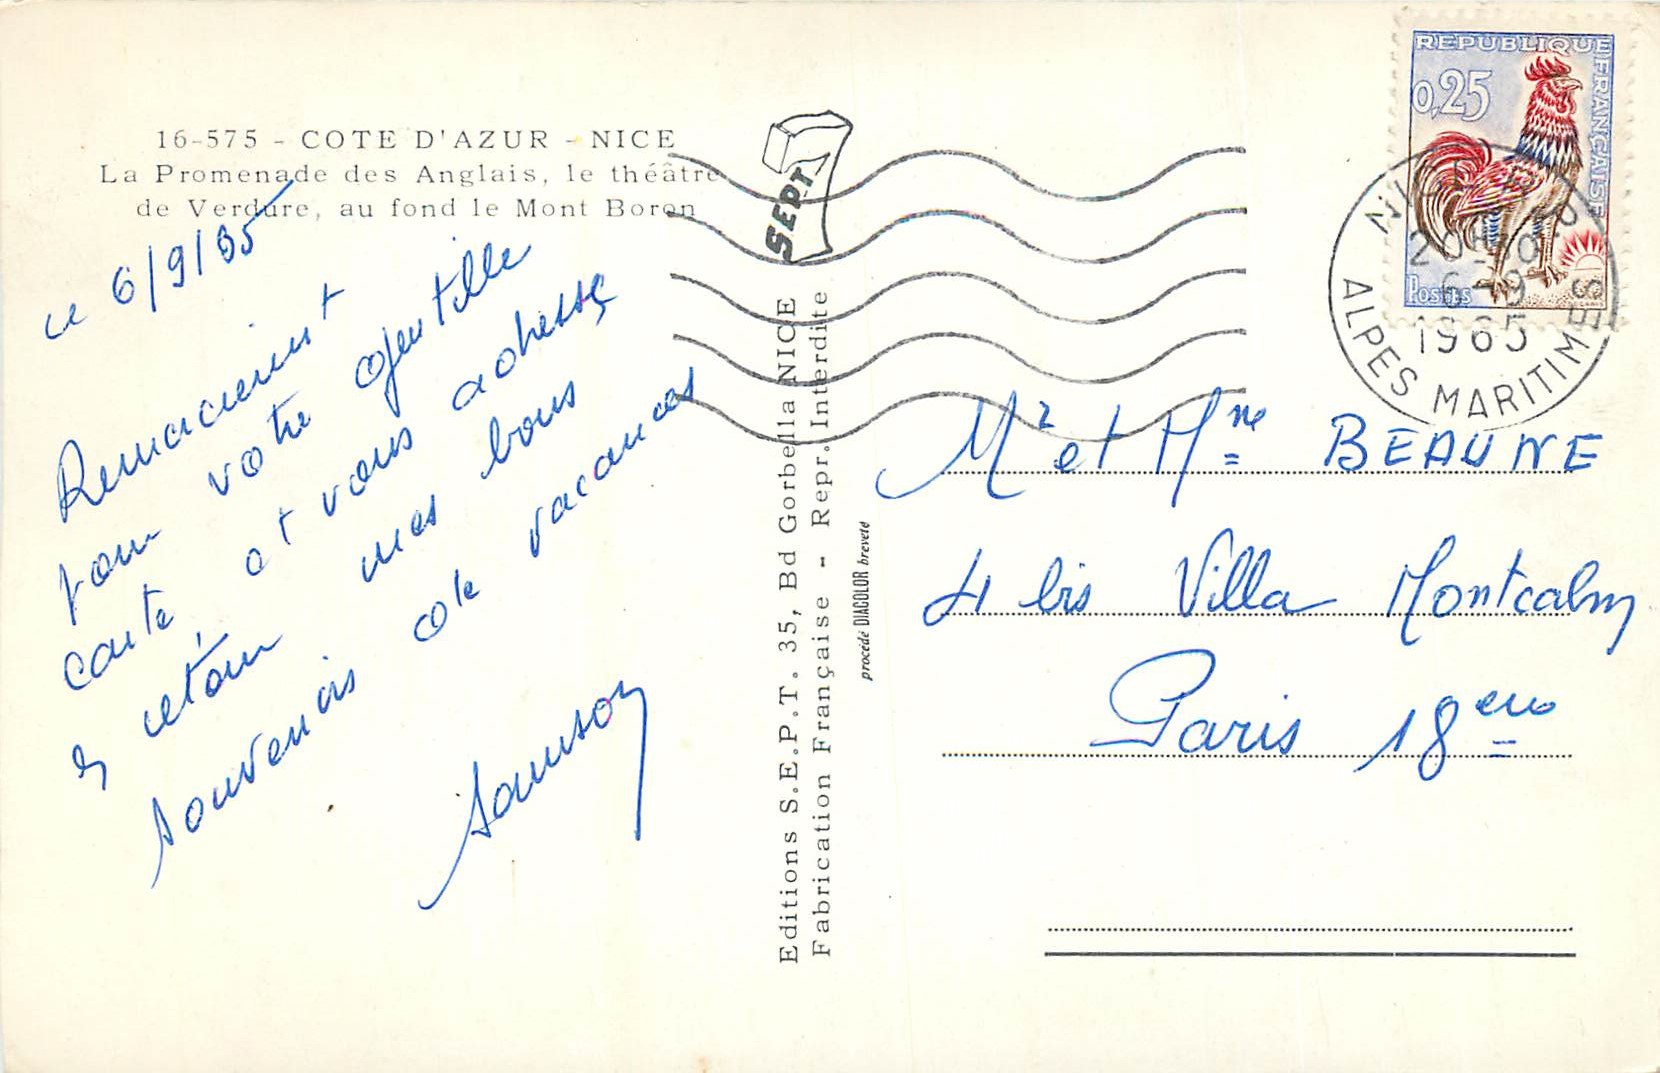 16-575 - COTE D'AZUR - NICE
La Promenade des Anglais, le théâtre
de Verdure, au fond le Mont Boron
le 6/9/65
Remerciement
pour votre gentille
carte et vous adresse
en retour mes bons
souvenirs de vacances
Samson
SEPT
Editions S.E.P.T. 35, Bd Gorbella NICE
Fabrication Française - Repr. Interdite
procédé DIACOLOR breveté
REPUBLIQUE FRANÇAISE
0,25
POSTES
20H30
6-9
1965
ALPES MARITIMES
Mr et Mme BEAUNE
4 bis Villa Montcalm
Paris 18eme